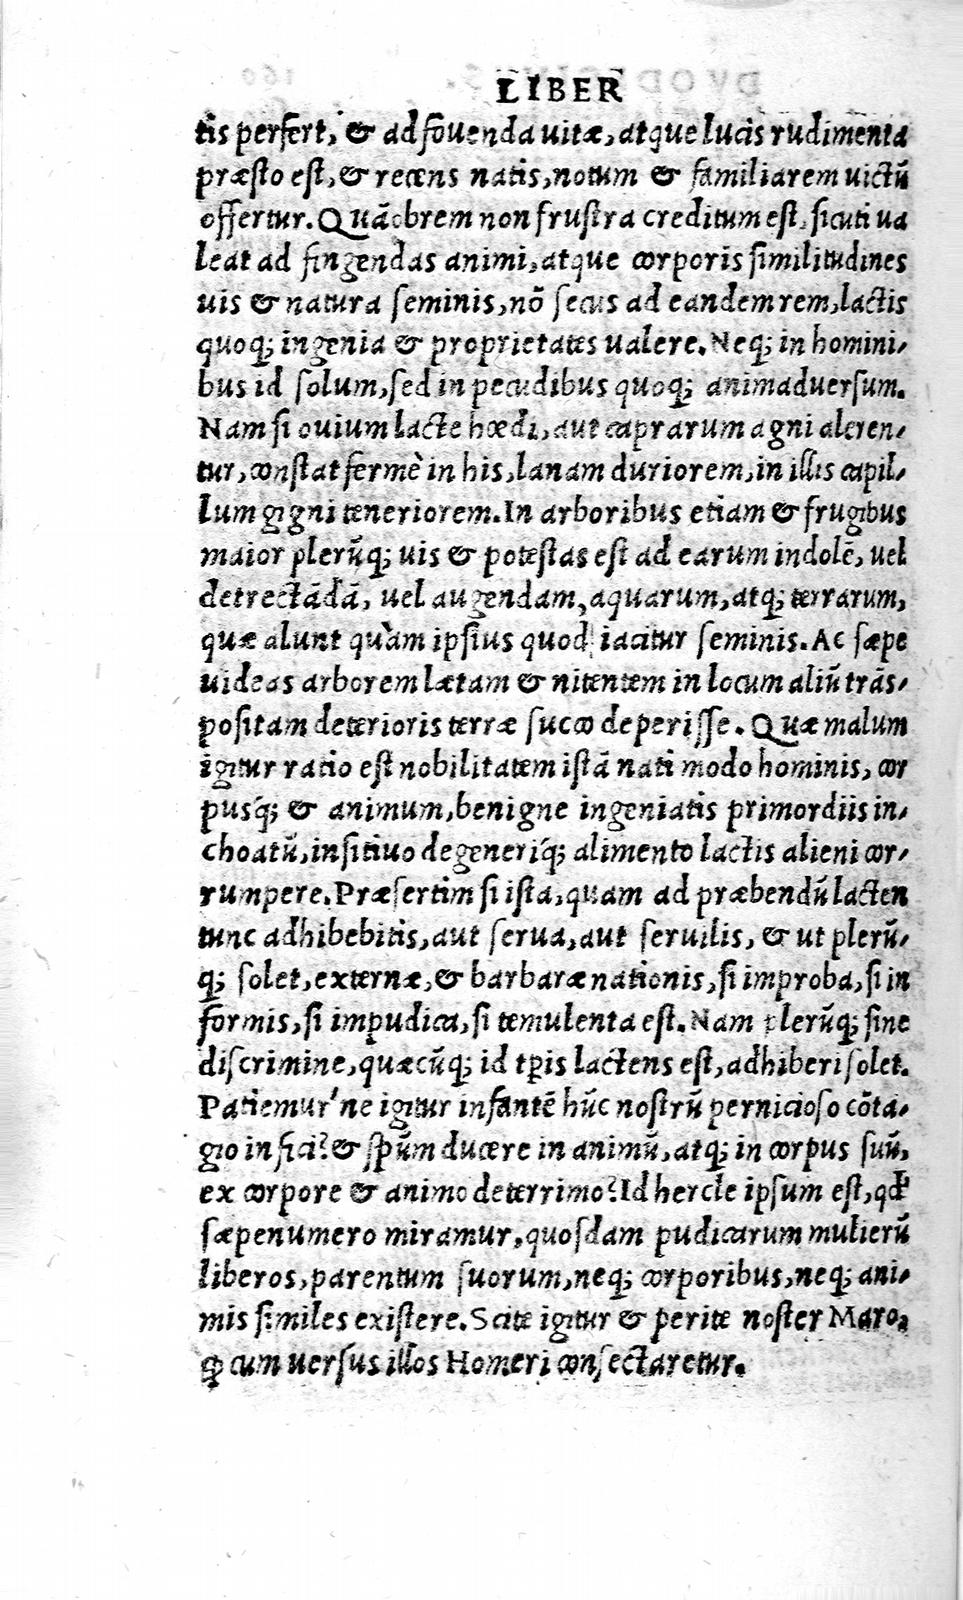 LIBER
tis perfert, & ad fouenda uitæ, atque lucis rudimenta
præsto est, & recens natis, notum & familiarem uictũ
offertur. Quãobrem non frustra creditum est, sicuti ua
leat ad fingendas animi, atque corporis similitudines
uis & natura seminis, nõ secus ad eandem rem, lactis
quoq; ingenia & proprietates ualere. Neq; in homini-
bus id solum, sed in pecudibus quoq; animaduersum.
Nam si ouium lacte hœdi, aut caprarum agni aleren-
tur, constat fermè in his, lanam duriorem, in illis capil-
lum gigni teneriorem. In arboribus etiam & frugibus
maior plerũq; uis & potestas est ad earum indolẽ, uel
detrectãdã, uel augendam, aquarum, atq; terrarum,
quæ alunt quàm ipsius quod iacitur seminis. Ac sæpe
uideas arborem lætam & nitentem in locum aliũ trãs-
positam deterioris terræ succo deperisse. Quæ malum
igitur ratio est nobilitatem istã nati modo hominis, cor
pusq́; & animum, benigne ingeniatis primordiis in-
choatũ, insitiuo degeneriq́; alimento lactis alieni cor-
rumpere. Præsertim si ista, quam ad præbendũ lacten
tunc adhibebitis, aut serua, aut seruilis, & ut plerũ-
q; solet, externæ, & barbaræ nationis, si improba, si in
formis, si impudica, si temulenta est. Nam plerũq; sine
discrimine, quæcũq; id tp̃is lactens est, adhiberi solet.
Patiemur'ne igitur infantẽ hũc nostrũ pernicioso cõta-
gio infici? & spũm ducere in animũ, atq; in corpus suũ,
ex corpore & animo deterrimo? Id hercle ipsum est, qđ
sæpenumero miramur, quosdam pudicarum mulierũ
liberos, parentum suorum, neq; corporibus, neq; ani-
mis similes existere. Scite igitur & perite noster Maro,
ꝙ cum uersus illos Homeri consectaretur.